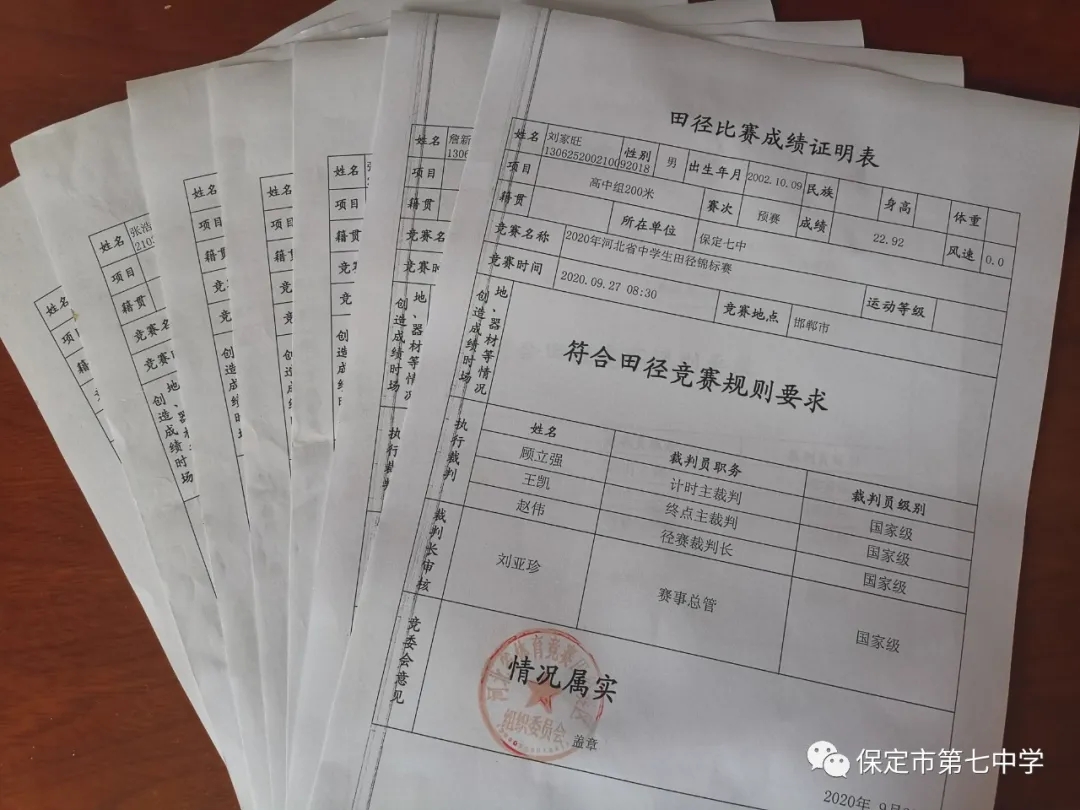 田径比赛成绩证明表
姓名 刘家旺 性别 男 出生年月 2002.10.09 民族 身高 体重
130625200210092018
项目 高中组200米 赛次 预赛 成绩 22.92 风速 0.0
籍贯 所在单位 保定七中
竞赛名称 2020年河北省中学生田径锦标赛 运动等级
竞赛时间 2020.09.27 08:30 竞赛地点 邯郸市
创造成绩时场地、器材等情况
符合田径竞赛规则要求
执行裁判
姓名 裁判员职务 裁判员级别
顾立强 计时主裁判 国家级
王凯 终点主裁判 国家级
赵伟 径赛裁判长 国家级
裁判长审核 刘亚珍 赛事总管 国家级
竞委会意见
情况属实
组织委员会
盖章
2020年 9月
姓名 詹新
1306
项目
籍贯
竞赛名
竞赛时
创造成绩时场地、器材等情况
执行裁判
姓名
项目
籍贯
竞
竞
创造成绩时
姓名
项目
籍
竞
竞
创造成绩
姓名
项目
籍
竞
竞
创造成绩
姓名 张浩
2103
项目
籍贯
竞赛名
竞赛时
创造成绩时场地、器材
姓名
项
籍
保定市第七中学